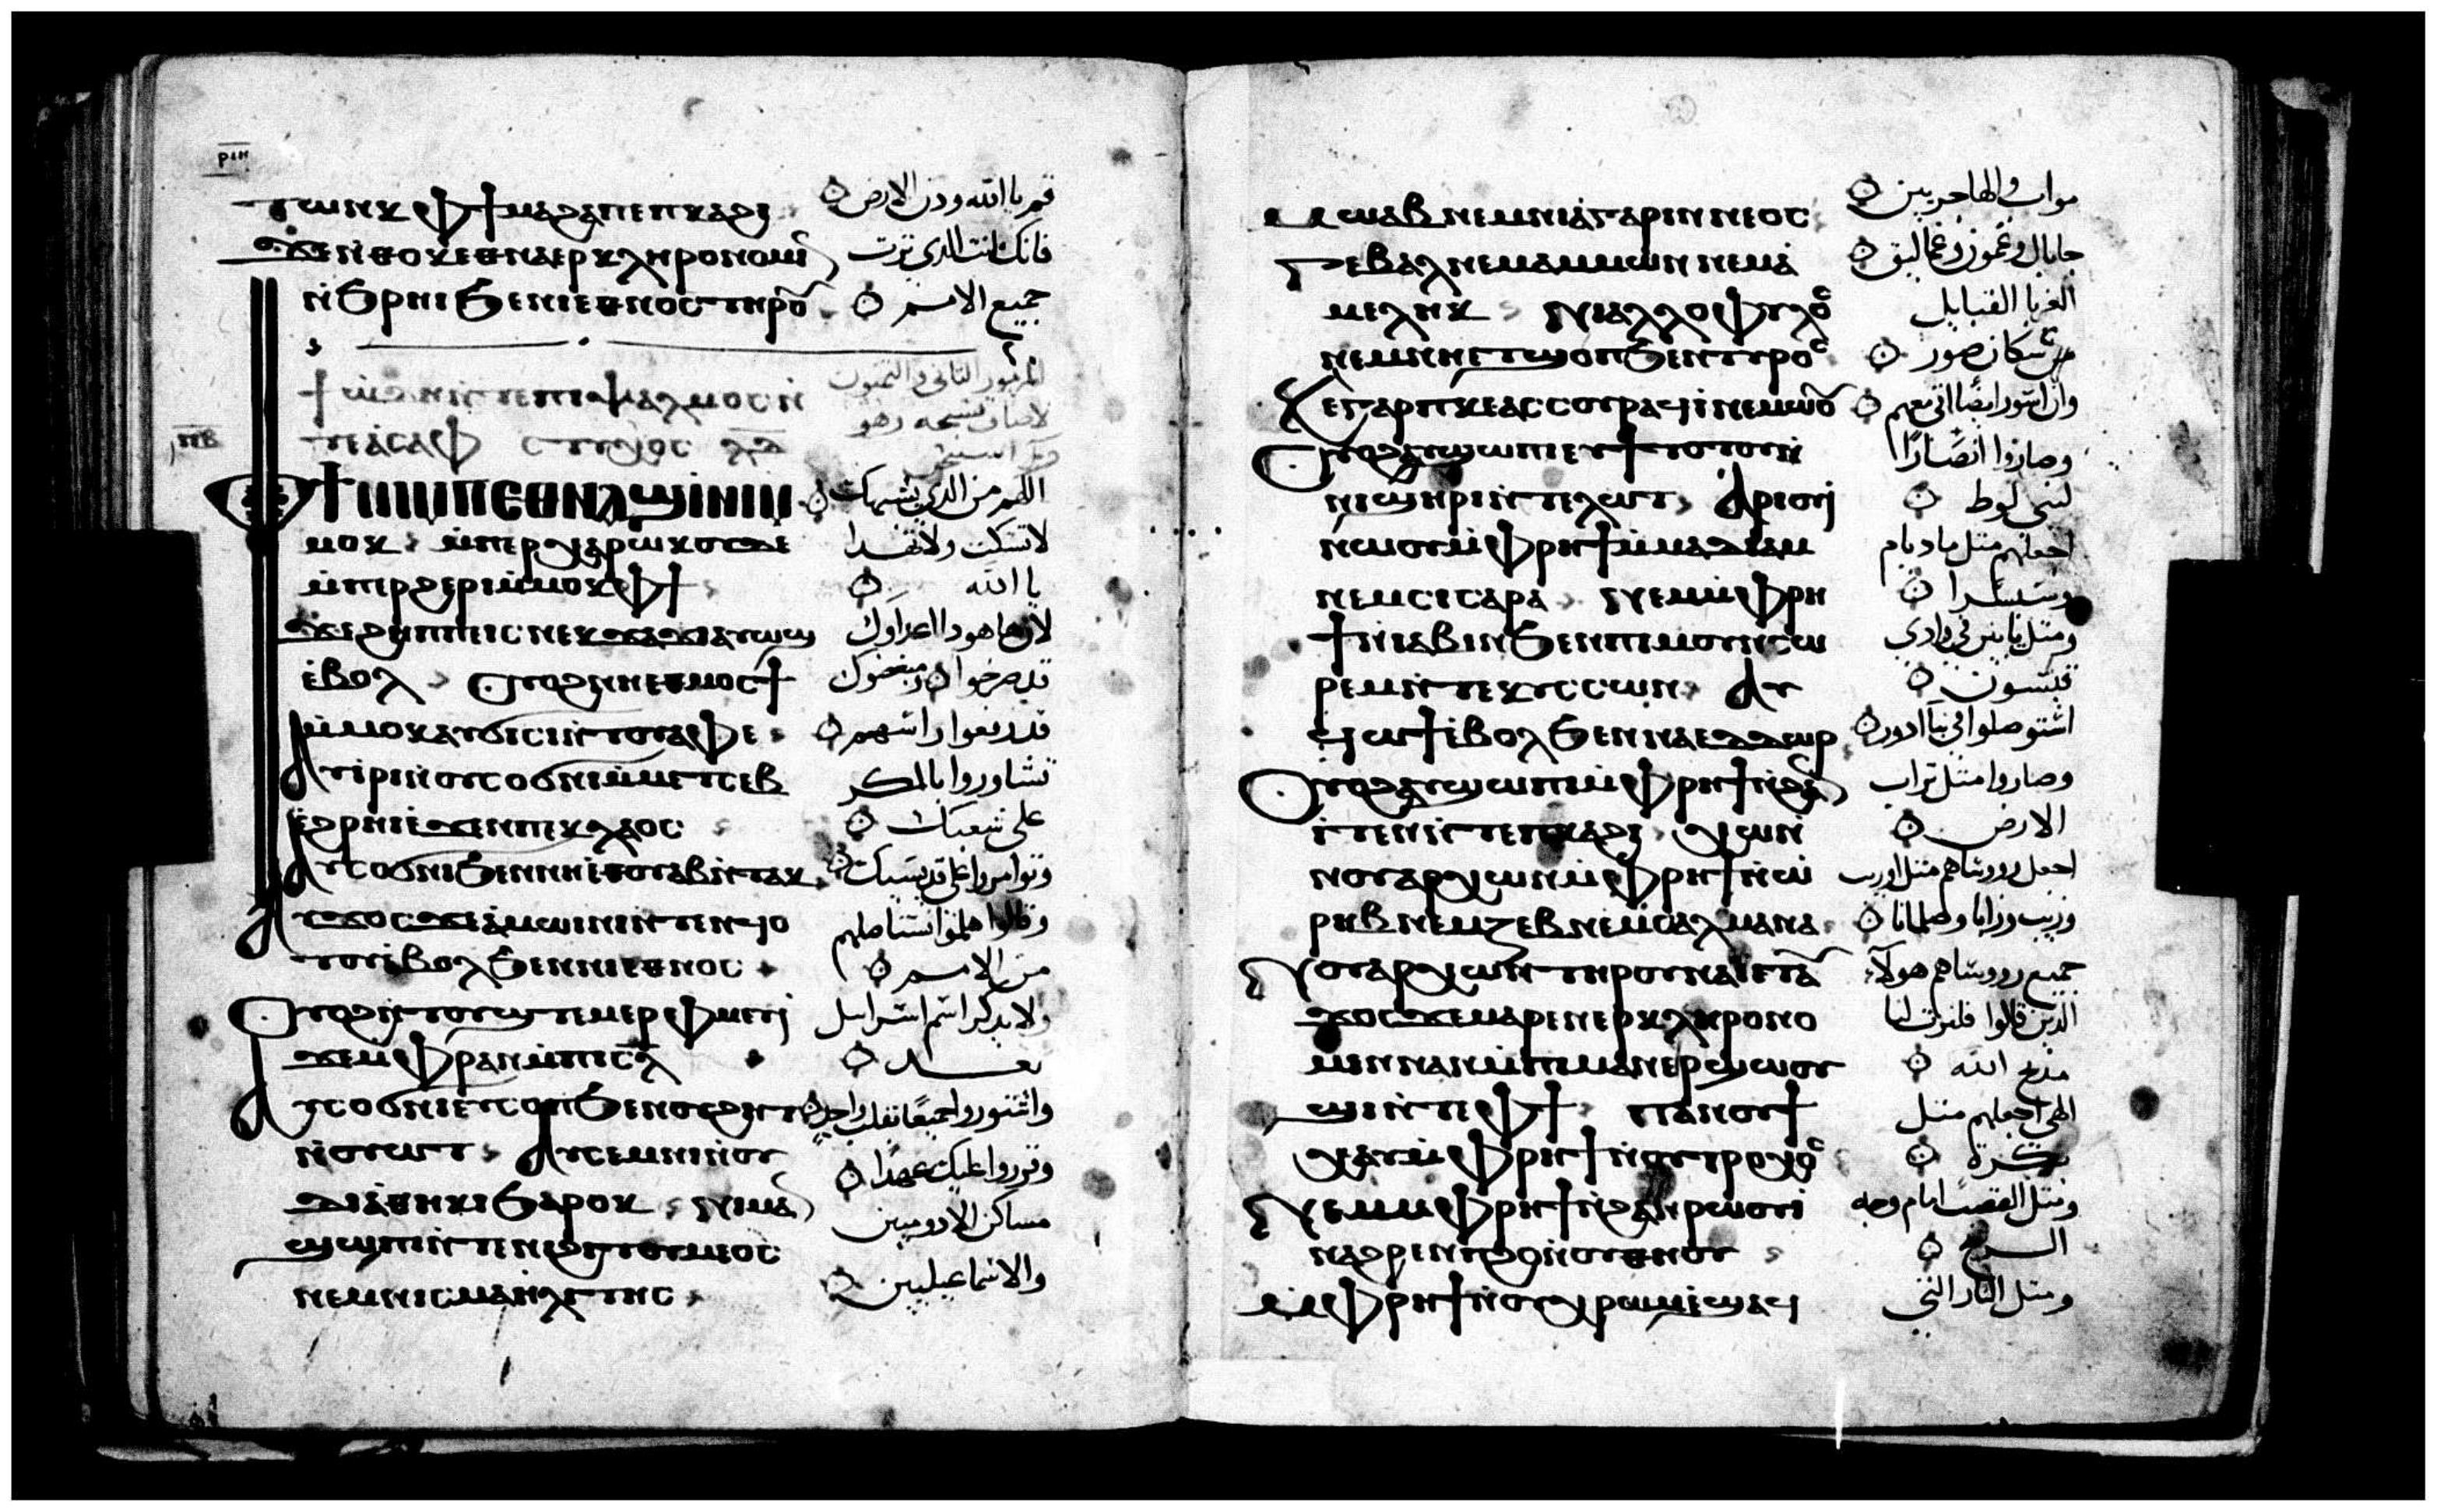 ⲣⲓⲏ
ⲧⲱⲛⲕ ⲫϯ ⲙⲁϩⲁⲡ ⲉⲡⲕⲁϩⲓ قم يا الله ودن الارض
ϫⲉ ⲛⲑⲟⲕ ⲉⲑⲛⲁⲉⲣⲕⲗⲏⲣⲟⲛⲟⲙⲓⲛ فانك انت الدي ترت
ⲛϧⲣⲏⲓ ϧⲉⲛ ⲛⲓⲉⲑⲛⲟⲥ ⲧⲏⲣⲟⲩ جميع الامم
ϯⲱⲇⲏ ⲛⲧⲉ ⲡⲓⲯⲁⲗⲙⲟⲥ ⲛ المزمور التاني والتمنون
ⲧⲉ ⲁⲥⲁⲫ ⲥⲧⲩⲭⲟⲥ ⲗⲇ
ⲡⲃ
ⲫϯ ⲛⲓⲙ ⲡⲉⲑⲛⲁϣⲓⲛⲓ ⲙ اللهم من الدي يشبهك
ⲙⲟⲕ ⲙⲡⲉⲣⲭⲁⲣⲱⲕ ⲟⲩⲇⲉ لا تسكت ولا تهدا
ⲙⲡⲣϩⲉⲣⲓ ⲙⲙⲟⲕ ⲫϯ يا الله
ϫⲉ ϩⲏⲡⲡⲉ ⲓⲥ ⲛⲉⲕϫⲁϫⲓ ⲁⲩⲱϣ لان ها هودا اعداوك
ⲉⲃⲟⲗ ⲟⲩⲟϩ ⲛⲏ ⲉⲑⲙⲟⲥϯ قد صرخوا ومبغضوك
ⲙⲙⲟⲕ ⲁⲩϭⲓⲥⲓ ⲛⲧⲟⲩⲁⲫⲉ قد رفعوا راسهم
ⲁⲩⲓⲣⲓ ⲛⲟⲩⲥⲟϭⲛⲓ ⲙⲙⲉⲧⲥⲉⲃ تشاوروا بالمكر
ⲉϩⲣⲏⲓ ⲉϫⲉⲛ ⲡⲉⲕⲗⲁⲟⲥ على شعبك
ⲁⲩⲥⲟϭⲛⲓ ϧⲉⲛ ⲛⲏ ⲉⲑⲟⲩⲁⲃ ⲛⲧⲁⲕ وتوامروا على قديسيك
ⲁⲩϫⲟⲥ ϫⲉ ⲁⲙⲱⲓⲛⲓ ⲛⲧⲉⲛϥⲟ وقالوا هلموا نستاصلهم
ⲧⲟⲩ ⲉⲃⲟⲗ ϧⲉⲛ ⲛⲓⲉⲑⲛⲟⲥ من الامم
ⲟⲩⲟϩ ⲛⲧⲟⲩϣⲧⲉⲙⲉⲣ ⲫⲙⲉⲩⲓ ولا يدكر اسم اسرايل
ϫⲉ ⲙⲫⲣⲁⲛ ⲙⲡⲓⲥⲗ بعد
ⲁⲩⲥⲟϭⲛⲓ ⲉⲩⲥⲟⲡ ϧⲉⲛ ⲟⲩϩⲏⲧ واشتوروا جميعا بقلب واحد
ⲛⲟⲩⲱⲧ ⲁⲩⲥⲉⲙⲛⲓ ⲛⲟⲩ وقرروا عليك عهدا
ⲇⲓⲁⲑⲏⲕⲏ ϧⲁⲣⲟⲕ ⲛⲓⲙⲁⲛ مساكن الادوميين
ϣⲱⲡⲓ ⲛⲧⲉ ⲛⲓϩⲩⲇⲟⲩⲙⲉⲟⲥ
ⲛⲉⲙ ⲛⲓⲥⲙⲁⲏⲗⲓⲧⲏⲥ والاسماعيليين
ⲙⲱⲁⲃ ⲛⲉⲙ ⲛⲓⲁⲅⲁⲣⲓⲛⲛⲉⲟⲥ مواب والهاجريين
ⲅⲉⲃⲁⲗ ⲛⲉⲙ ⲁⲙⲙⲱⲛ ⲛⲉⲙ ⲁ جابال وعمون وعماليق
ⲙⲉⲗⲏⲕ ⲛⲓⲁⲗⲗⲟⲫⲩⲗⲟⲥ الغربا القبايل
ⲛⲉⲙ ⲛⲏ ⲉⲧϣⲟⲡ ϧⲉⲛ ⲧⲩⲣⲟⲥ من سكان صور
ⲕⲉ ⲅⲁⲣ ⲡⲕⲉⲁⲥⲥⲟⲩⲣ ⲁϥⲓ ⲛⲉⲙⲱⲟⲩ وان اسور ايضا اتى معهم
ⲟⲩⲟϩ ⲁⲩϣⲱⲡⲓ ⲉⲩϯⲧⲟⲧⲟⲩ ⲛ وصاروا انصارا
ⲛⲓϣⲏⲣⲓ ⲛⲧⲉ ⲗⲱⲧ ⲁⲣⲓⲟⲩⲓ لبني لوط
ⲛⲱⲟⲩ ⲙⲫⲣⲏϯ ⲙⲙⲁⲇⲓⲁⲙ اجعلهم متل ماديام
ⲛⲉⲙ ⲥⲓⲥⲁⲣⲁ ⲛⲉⲙ ⲙⲫⲣⲏ وسيسرا
ϯ ⲛⲓⲁⲃⲓⲛ ϧⲉⲛ ⲡⲓⲙⲟⲩⲛⲥⲱ ومتل يابين في وادي
ⲣⲉⲙ ⲛⲧⲉ ⲕⲩⲥⲥⲱⲛ ⲁⲩ قيسون
ϥⲱϯ ⲉⲃⲟⲗ ϧⲉⲛ ⲛⲁⲉⲇⲇⲱⲣ
ⲟⲩⲟϩ ⲁⲩϣⲱⲡⲓ ⲙⲫⲣⲏϯ ⲛϩⲁⲛ وصاروا متل تراب
ⲓⲧⲉⲛ ⲛⲧⲉ ⲡⲕⲁϩⲓ ⲭⲱ ⲛ الارض
ⲛⲟⲩⲁⲣⲭⲱⲛ ⲙⲫⲣⲏϯ ⲛⲱ اجعل رووساهم متل اوريب
ⲣⲏⲃ ⲛⲉⲙ ⲍⲉⲃ ⲛⲉⲙ ⲥⲁⲗⲙⲁⲛⲁ وزيب وزابا وصلمانا
ⲛⲟⲩⲁⲣⲭⲱⲛ ⲧⲏⲣⲟⲩ ⲛⲁⲓ ⲉⲧⲁⲩ جميع رووساهم هولاء
ϫⲟⲥ ϫⲉ ⲙⲁⲣⲉⲛⲉⲣⲕⲗⲏⲣⲟⲛⲟ الدين قالوا فلنرت لنا
ⲙⲓⲛ ⲛⲁⲛ ⲙⲡⲓⲙⲁⲛⲉⲣϣⲱⲟⲩ مدبح الله
ϣⲓ ⲛⲧⲉ ⲫϯ ⲡⲁⲛⲟⲩϯ الهي اجعلهم متل
ⲭⲁⲩ ⲙⲫⲣⲏϯ ⲛⲟⲩⲧⲣⲟⲭⲟⲥ بكرة
ⲛⲉⲙ ⲙⲫⲣⲏϯ ⲛϩⲁⲛⲣⲱⲟⲩⲓ ومتل القصب امام وجه
ⲛⲁϩⲣⲉⲛ ⲡϩⲟ ⲛⲟⲩⲑⲏⲟⲩ الريح
ⲙⲫⲣⲏϯ ⲛⲟⲩⲭⲣⲱⲙ ⲉϣⲁϥ ومتل النار التي